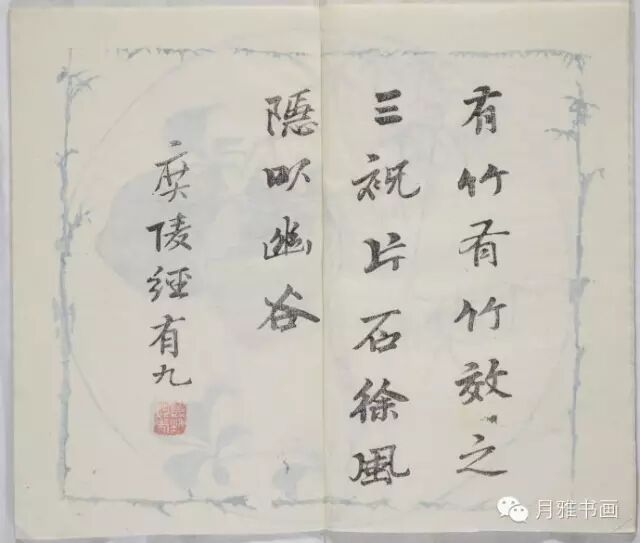 有竹有竹效之
三祝片石徐風
隱以幽谷
廣陵經有九
月雅书画